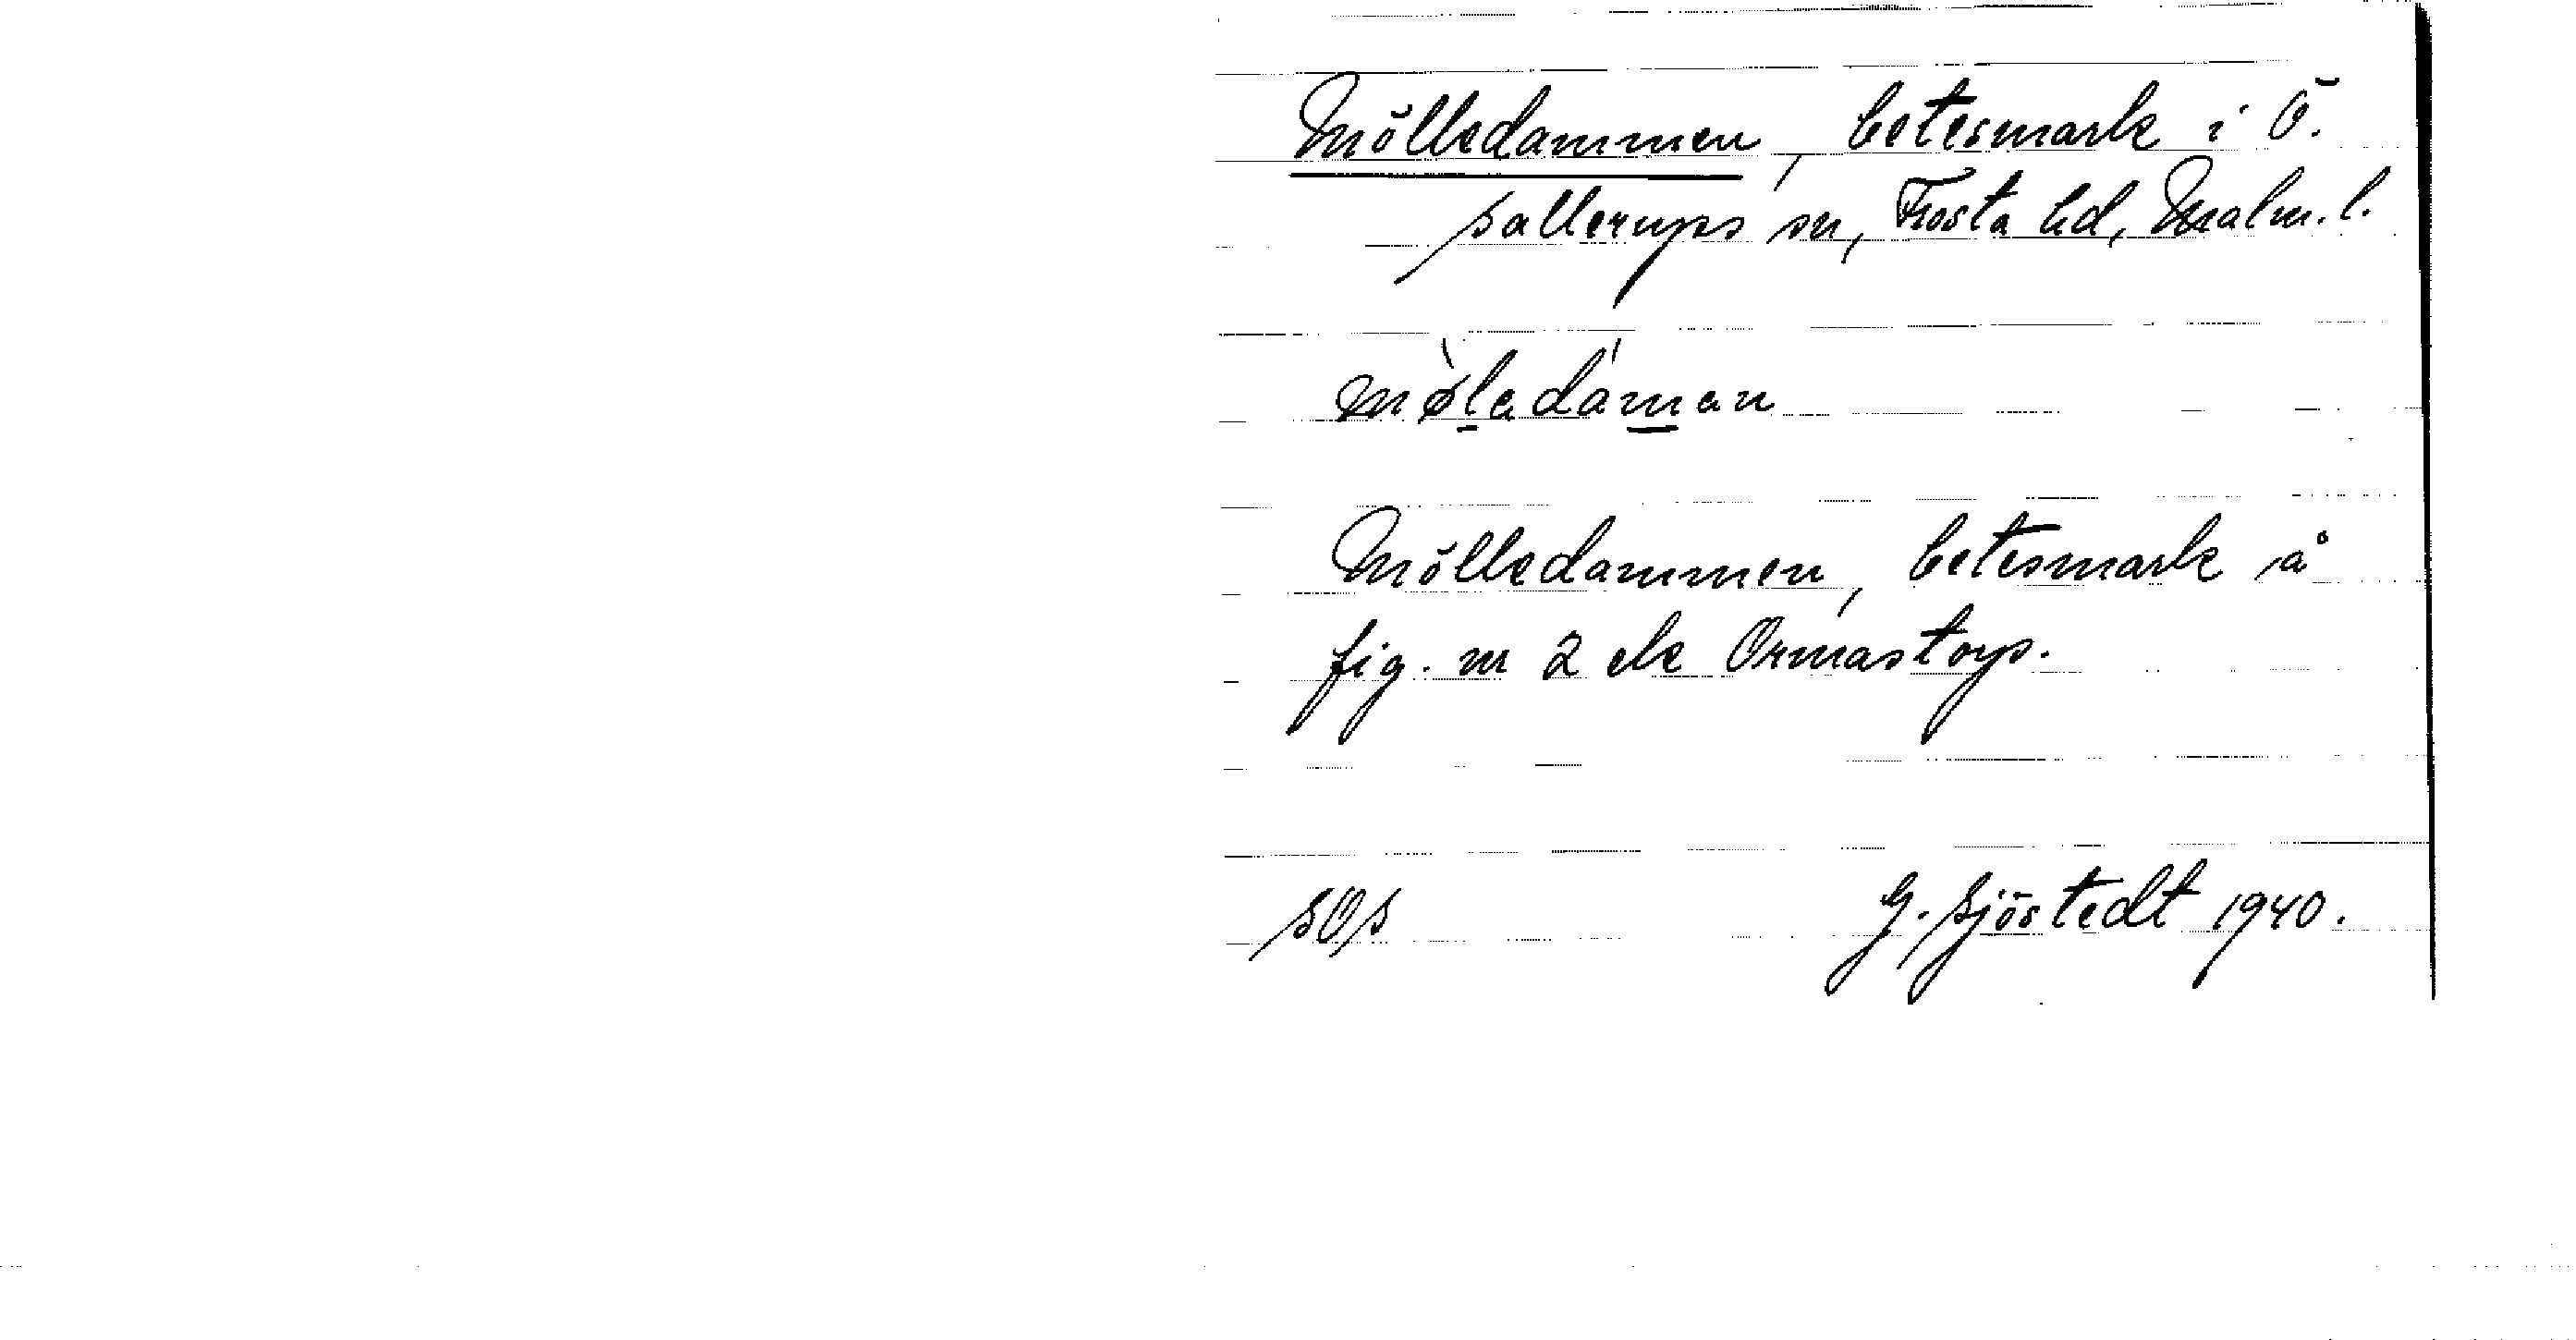 Mölledammen, betesmark i Ö.
Sallerups sn, Frosta hd, Malm. l.
mø̀ladáman
Mölledammen, betesmark å
fig. nr 2 ek Ormastorp.
SOS G. Sjöstedt 1940.